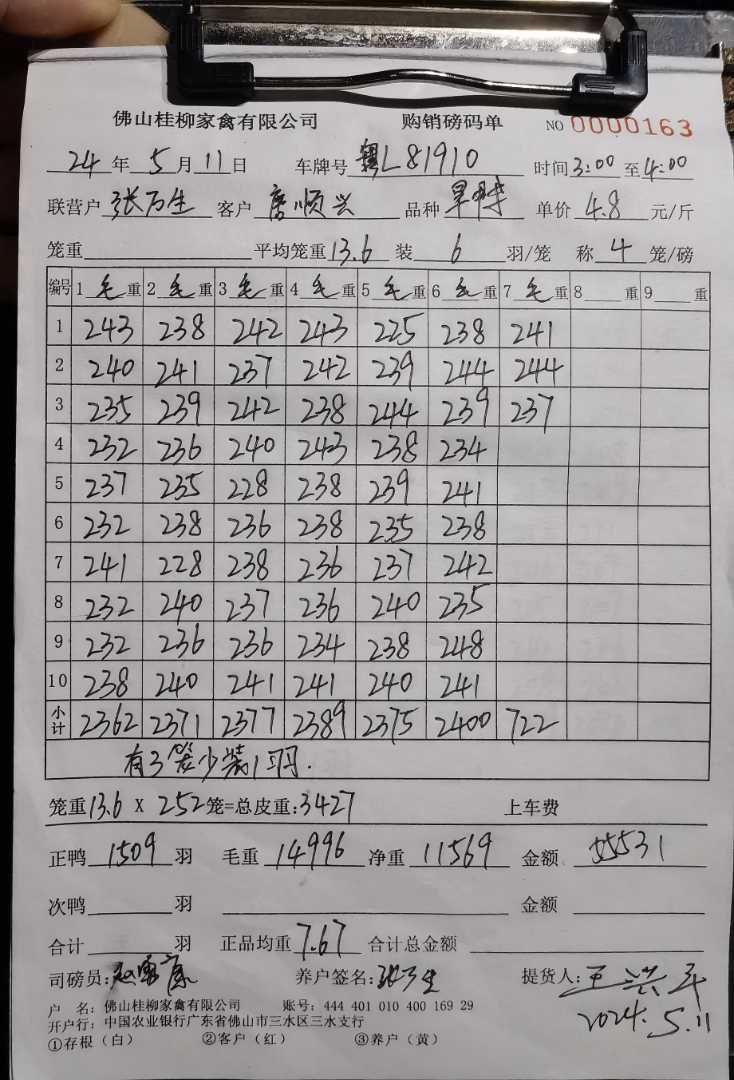 佛山桂柳家禽有限公司 购销磅码单 NO 0000163
24年5月11日 车牌号 粤L81910 时间3:00至4:00
联营户 张万生 客户 唐顺兴 品种 单价 4.8 元/斤
笼重 平均笼重13.6 装 6 羽/笼 称 4 笼/磅
编号 1 毛 重 2 毛 重 3 毛 重 4 毛 重 5 毛 重 6 毛 重 7 毛 重 8 重 9 重
1 243 238 242 243 225 238 241
2 240 241 237 242 239 244 244
3 235 239 242 238 244 239 237
4 232 236 240 243 238 234
5 237 235 228 238 239 241
6 232 238 236 238 235 238
7 241 228 238 236 237 242
8 232 240 237 236 240 235
9 232 236 236 234 238 248
10 238 240 241 241 240 241
小计 2362 2371 2377 2389 2375 2400 722
有3笼少装1羽.
笼重13.6 X 252笼=总皮重:3427 上车费
正鸭 1509 羽 毛重 14996 净重 11569 金额 55531
次鸭 羽 金额
合计 羽 正品均重 7.67 合计总金额
司磅员: 养户签名: 张万生 提货人:
2024.5.11
户 名: 佛山桂柳家禽有限公司 账号: 444 401 010 400 169 29
开户行: 中国农业银行广东省佛山市三水区三水支行
①存根(白) ②客户(红) ③养户(黄)